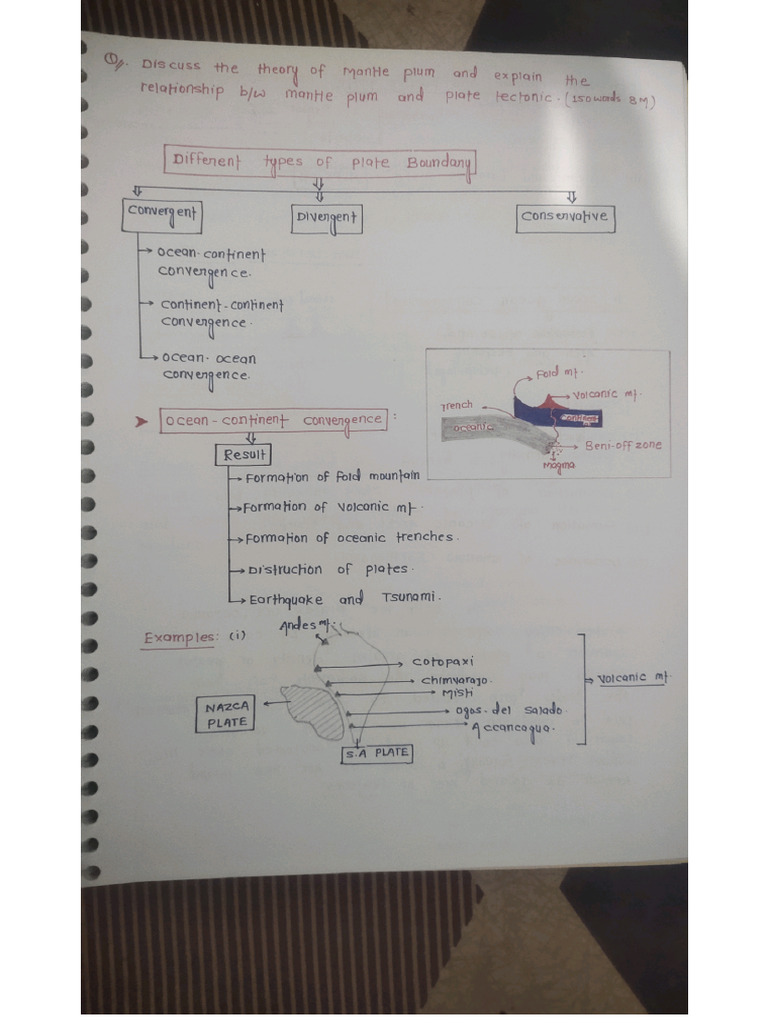 Q. Discuss the theory of mantle plum and explain the
relationship b/w mantle plum and plate tectonic. (150 words 8M)
Different types of plate Boundary
Convergent
Divergent
Conservative
Ocean-continent
convergence.
Continent-continent
convergence.
Ocean-ocean
convergence.
Fold mt.
Volcanic mt.
Trench
Continent
Oceanic
Beni-off zone
Magma
Ocean-continent convergence:
Result
Formation of Fold mountain
Formation of Volcanic mt.
Formation of oceanic trenches.
Distruction of plates.
Earthquake and Tsunami.
Examples: (i)
Andes mt.
Cotopaxi
Chimvarajo.
Misti
Ogos. del salado.
Accancagua.
Volcanic mt.
NAZCA
PLATE
S.A PLATE